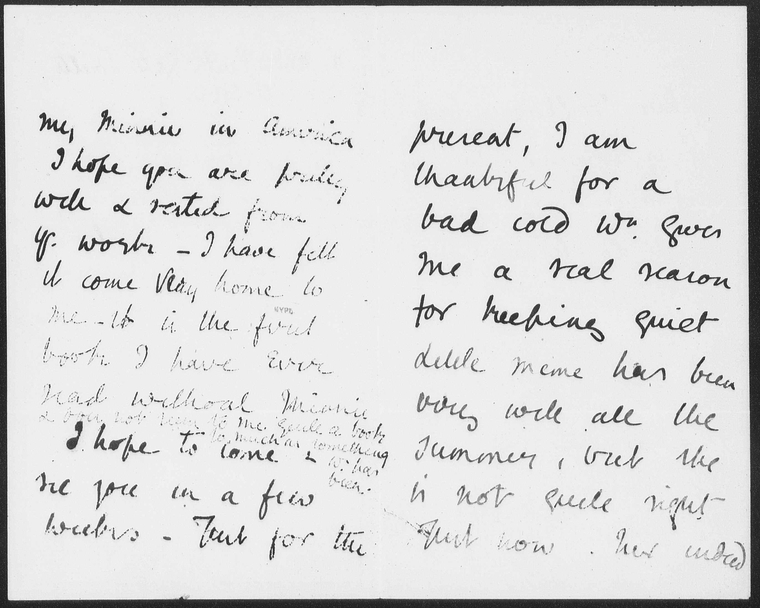 me, Minnie in America
I hope you are pretty
well & rested from
yr. work – I have felt
it come very home to
me – It is the first
book I have ever
read without Minnie
& does not seem to me quite a book
so much as something
wh. has
been.
I hope to come &
see you in a few
weeks – Just for the
present, I am
thankful for a
bad cold wh. gives
me a real reason
for keeping quiet
Little Meme has been
very well all the
summer, but she
is not quite right
Just now. her